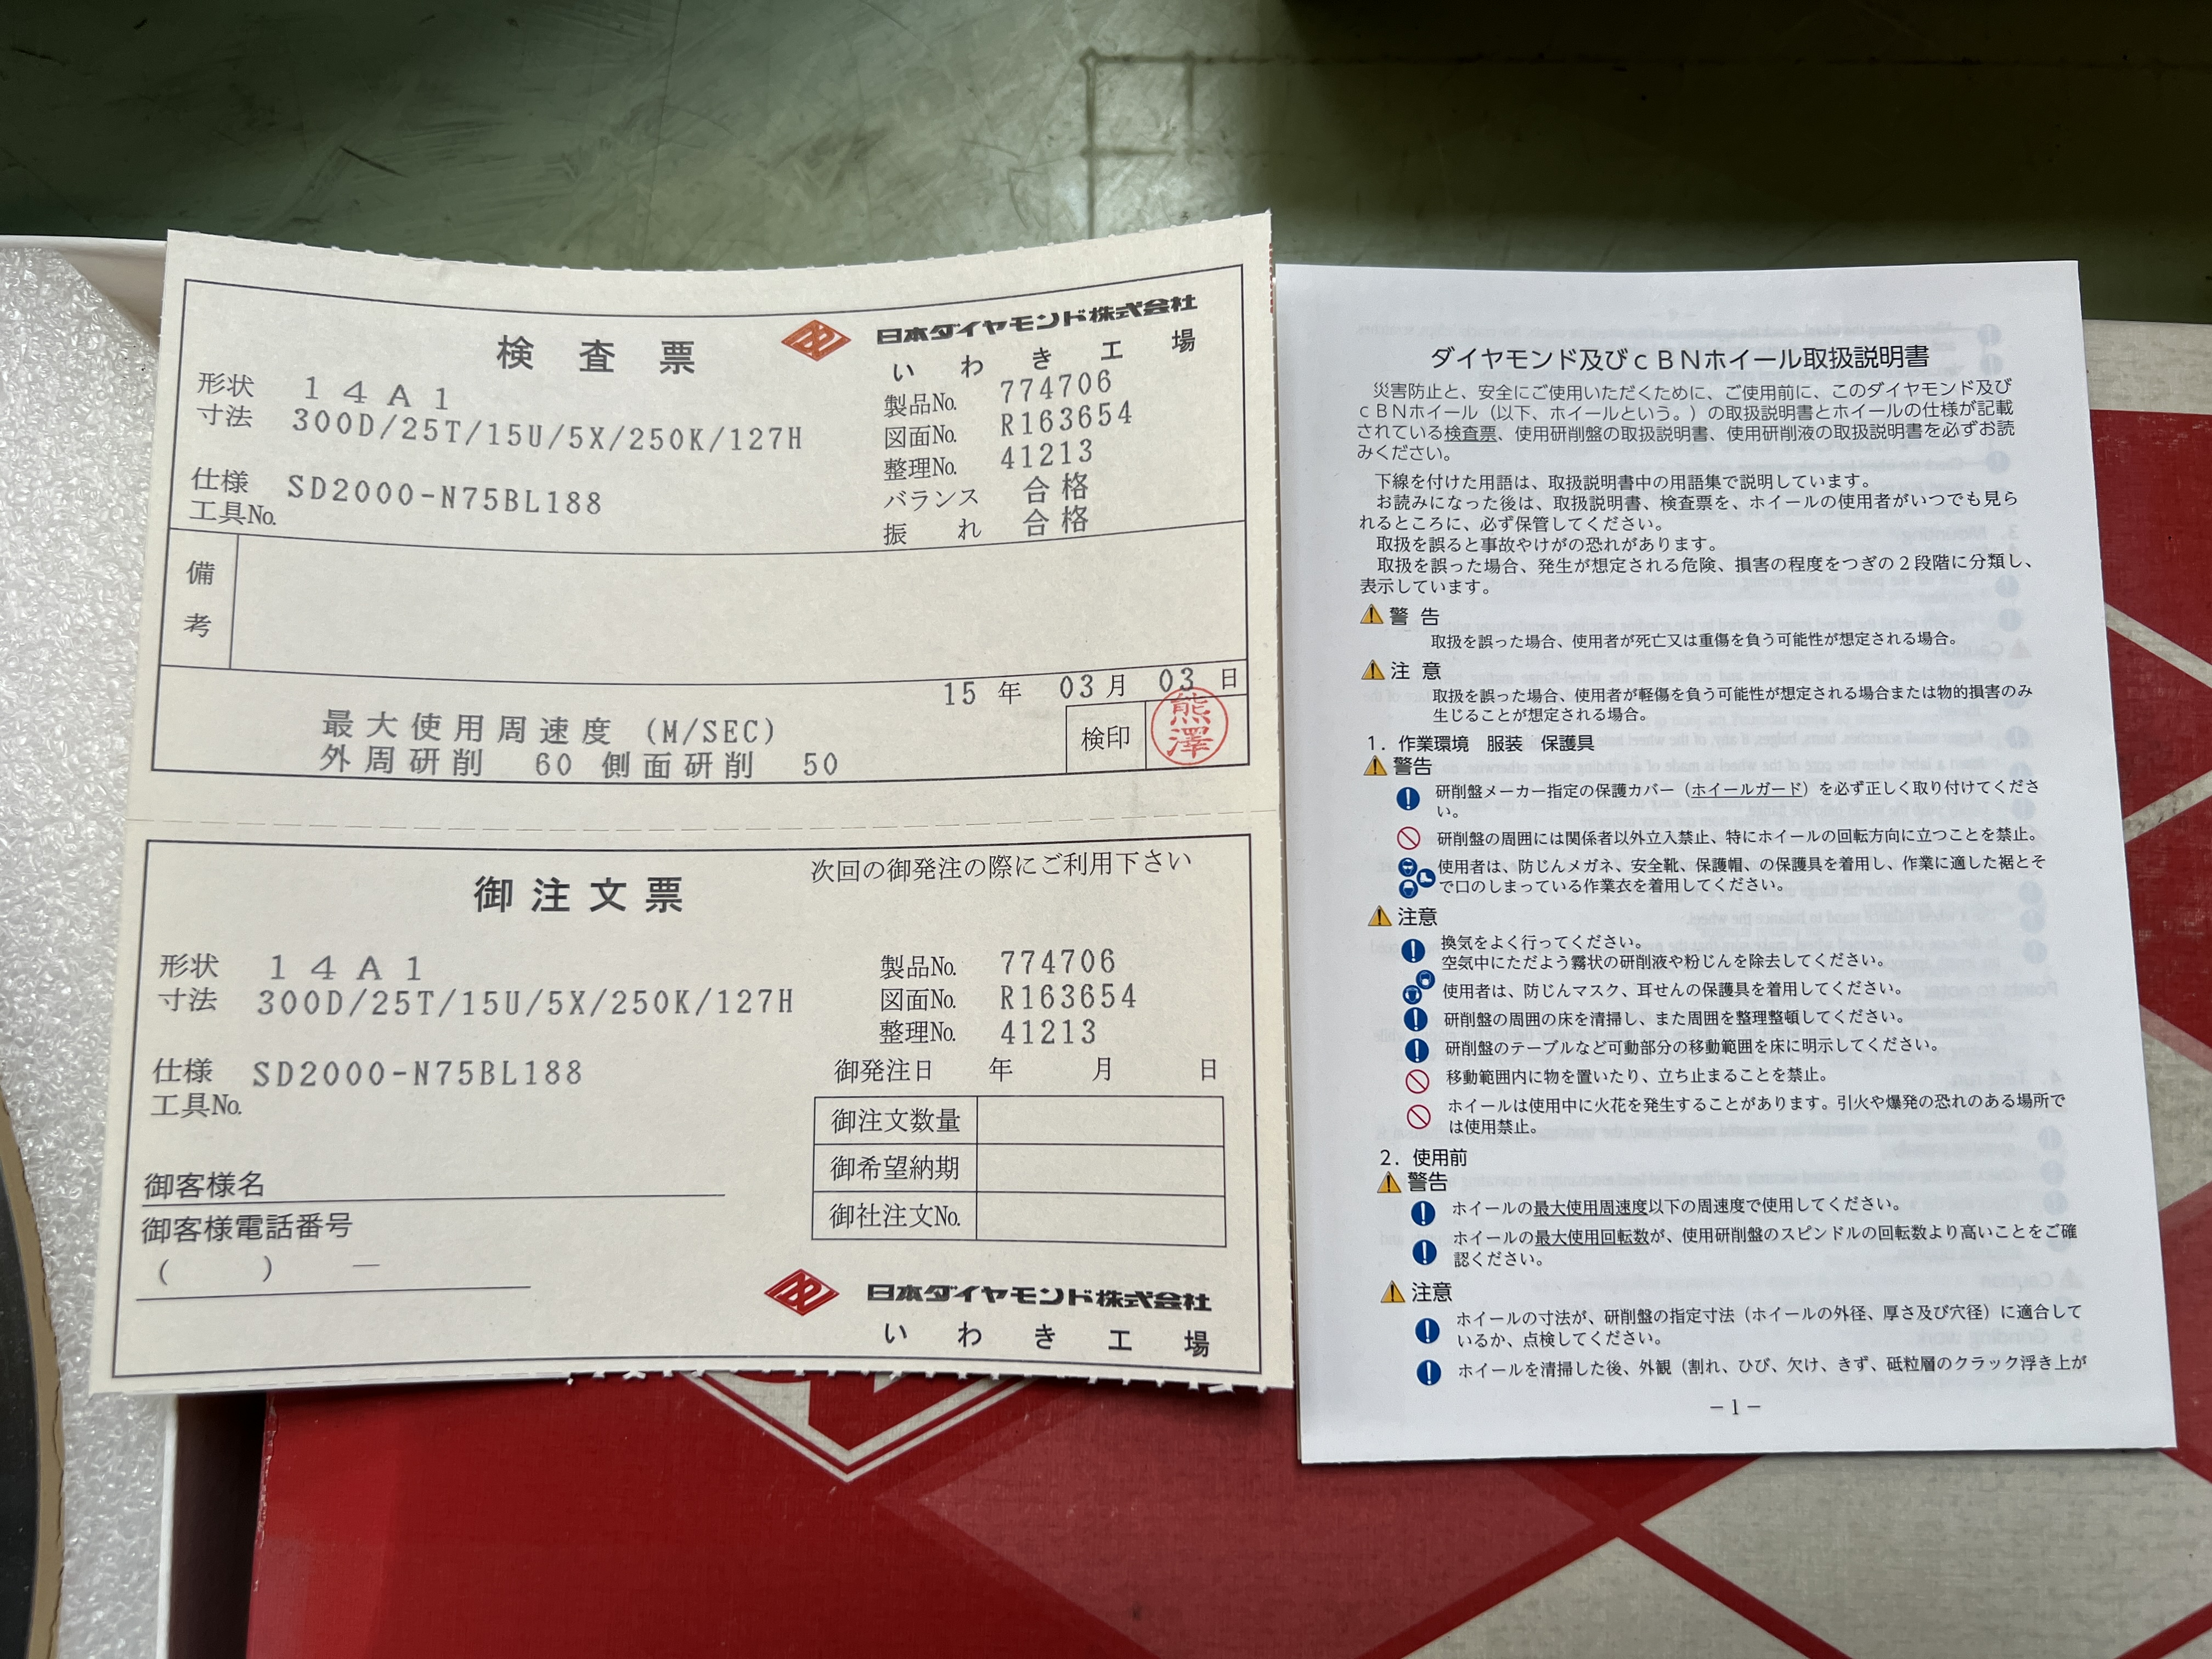 検査票
日本ダイヤモンド株式会社
いわき工場
形状 14A1
寸法 300D/25T/15U/5X/250K/127H
仕様 SD2000-N75BL188
工具No.
製品No. 774706
図面No. R163654
整理No. 41213
バランス 合格
振れ 合格
備考
15年 03月 03日
最大使用周速度 (M/SEC)
外周研削 60 側面研削 50
検印
熊澤
御注文票
次回の御発注の際にご利用下さい
形状 14A1
寸法 300D/25T/15U/5X/250K/127H
仕様 SD2000-N75BL188
工具No.
製品No. 774706
図面No. R163654
整理No. 41213
御発注日 年 月 日
御注文数量
御希望納期
御社注文No.
御客様名
御客様電話番号
( ) ―
日本ダイヤモンド株式会社
いわき工場
ダイヤモンド及びcBNホイール取扱説明書
災害防止と、安全にご使用いただくために、ご使用前に、このダイヤモンド及び
cBNホイール（以下、ホイールという。）の取扱説明書とホイールの仕様が記載
されている検査票、使用研削盤の取扱説明書、使用研削液の取扱説明書を必ずお読
みください。
下線を付けた用語は、取扱説明書中の用語集で説明しています。
お読みになった後は、取扱説明書、検査票を、ホイールの使用者がいつでも見ら
れるところに、必ず保管してください。
取扱を誤ると事故やけがの恐れがあります。
取扱を誤った場合、発生が想定される危険、損害の程度をつぎの2段階に分類し、
表示しています。
警告
取扱を誤った場合、使用者が死亡又は重傷を負う可能性が想定される場合。
注意
取扱を誤った場合、使用者が軽傷を負う可能性が想定される場合または物的損害のみ
生じることが想定される場合。
1. 作業環境 服装 保護具
警告
研削盤メーカー指定の保護カバー（ホイールガード）を必ず正しく取り付けてくださ
い。
研削盤の周囲には関係者以外立入禁止、特にホイールの回転方向に立つことを禁止。
使用者は、防じんメガネ、安全靴、保護帽、の保護具を着用し、作業に適した裾とそ
で口のしまっている作業衣を着用してください。
注意
換気をよく行ってください。
空気中にただよう霧状の研削液や粉じんを除去してください。
使用者は、防じんマスク、耳せんの保護具を着用してください。
研削盤の周囲の床を清掃し、また周囲を整理整頓してください。
研削盤のテーブルなど可動部分の移動範囲を床に明示してください。
移動範囲内に物を置いたり、立ち止まることを禁止。
ホイールは使用中に火花を発生することがあります。引火や爆発の恐れのある場所で
は使用禁止。
2. 使用前
警告
ホイールの最大使用周速度以下の周速度で使用してください。
ホイールの最大使用回転数が、使用研削盤のスピンドルの回転数より高いことをご確
認ください。
注意
ホイールの寸法が、研削盤の指定寸法（ホイールの外径、厚さ及び穴径）に適合して
いるか、点検してください。
ホイールを清掃した後、外観（割れ、ひび、欠け、きず、砥粒層のクラック浮き上が
－1－